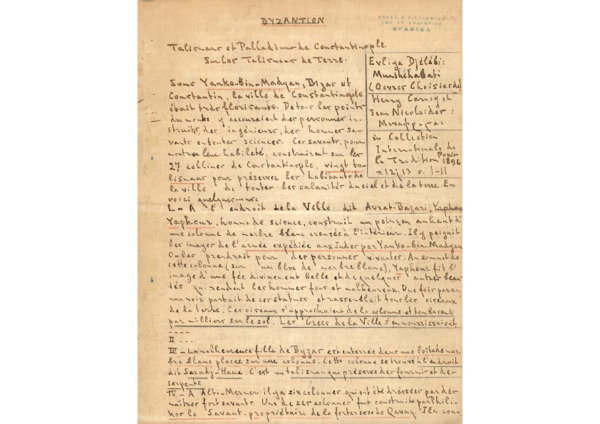 BYZANTION
Talismans et Palladium de Constantinople.
Sur les Talismans de Terre.
Evliya Djélébi:
Muntéhabati
(Oeuvres Choisies)
Henry Carnoy et
Jean Nicolaïdes:
in Collection
Internationale de
la Tradition Paris
1894
Sous Yanko-bin-Madyan, Byzar et
Constantin, la ville de Constantinople
était très florissante. De tous les points
du monde y accouraient des personnes ins-
truites, des ingénieurs, des hommes sa-
vants en toutes sciences. Ces savants, pour
montrer leur habileté, construisirent sur les
27 collines de Constantinople, vingt ta-
lismans pour préserver les habitants de
la ville de toutes les calamités du ciel et de la terre. En
voici quelques-uns.
I. - A l'endroit de la Ville dit Avrat-Bazari, Yaphour
Yaphour, homme de science, construisit un
une colonne de marbre blanc creusée à l'intérieur. Il y peignit
les images de l'armée expédiée aux Indes par Yanko-bin-Madyan
On les prendrait pour des personnes vivantes. Au sommet de
cette colonne (sur un bloc de marbre blanc), Yaphour fit l'
image d'une fée divinement belle et de quelques autres beau-
tés qui rendent les hommes fous et malheureux. Une fois par an
une voix partait de ces statues et rassemblait tous les oiseaux
de la terre. Ces oiseaux s'approchaient de la colonne et tombaient
par milliers sur le sol. Les Grecs de la Ville s'en nourrissaient
----
II ----
III - La malheureuse fille de Byzar est enterrée dans une boîte de mar-
bre blanc placée sur une colonne. Cette colonne se trouve à l'endroit
dit Saradj-Hané. C'est un talisman qui préserve des fourmis et des
serpents
IV - A Alti-Mermer il y a six colonnes qui ont été dressées par des
maîtres fort savants. Une de ces colonnes fut construite par Phili-
kos le Savant, propriétaire de la forteresse de Qavaq. Il a con-